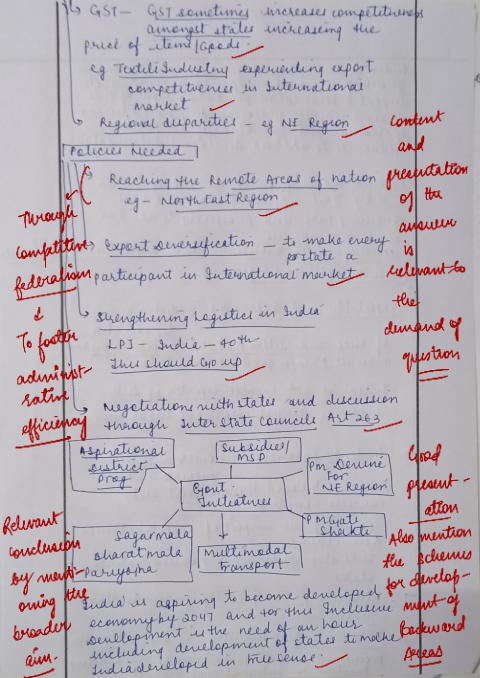 GST - GST sometimes increases competitiveness
amongst states increasing the
price of items/Goods.
eg Textile Industry experiencing export
competitiveness in International
market
Regional disparities - eg NE Region
Policies Needed
Reaching the Remote Areas of nation
eg - North East Region
Export Diversification - to make every
state a
participant in International market
Strengthening Logistics in India
LPI - India - 40th
This should Go up
Negotiations with states and discussion
through Inter State Councils Art 263
Aspirational
District
Prog
Subsidies/
MSP
PM Devine
for
NE Region
Govt.
Initiatives
Sagarmala
Bharatmala
Pariyojna
Multimodal
Transport
PM Gati
Shakti
India is aspiring to become developed
economy by 2047 and for this Inclusive
Development is the need of an hour
including development of states to make
India developed in true sense.
Through
competitive
federalism
&
To foster
administ-
rative
efficiency
Relevant
conclusion
by menti-
oning the
broader
aim.
content
and
presentation
of the
answer
is
relevant to
the
demand of
question
Good
present-
ation
Also mention
the schemes
for develop-
ment of
Backward
Areas